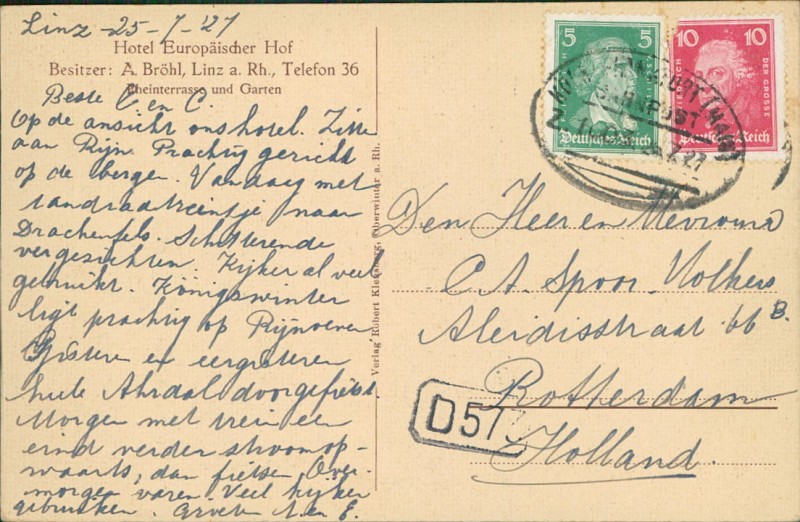 Linz 25-7-'27
Hotel Europäischer Hof
Besitzer: A. Bröhl, Linz a. Rh., Telefon 36
Rheinterrasse und Garten
Beste C en C.
Op de ansicht ons hotel. Zitten
aan Rijn. Prachtig gezicht
op de bergen. Vandaag met
tandraadtreintje naar
Drachenfels. Schitterende
vergezichten. Kijker al veel
gebruikt. Königswinter
ligt prachtig op Rijnoever
Gisteren en eergisteren
heele Ahrdal doorgefietst.
Morgen met trein een
eind verder stroomop-
waarts, dan fietsen. Over-
morgen varen. Veel kijker
gebruiken. Groeten A. en E.
Verlag Robert Oberwinter a. Rh.
5 5
Deutsches Reich
10 10
FRIEDRICH DER GROSSE
Deutsches Reich
KÖLN-FRANKFURT (MAIN)
BAHNPOST
7.27
Den Heer en Mevrouw
C. A. Spoor-Volkers
Aleidisstraat 66 B.
Rotterdam
Holland.
D57